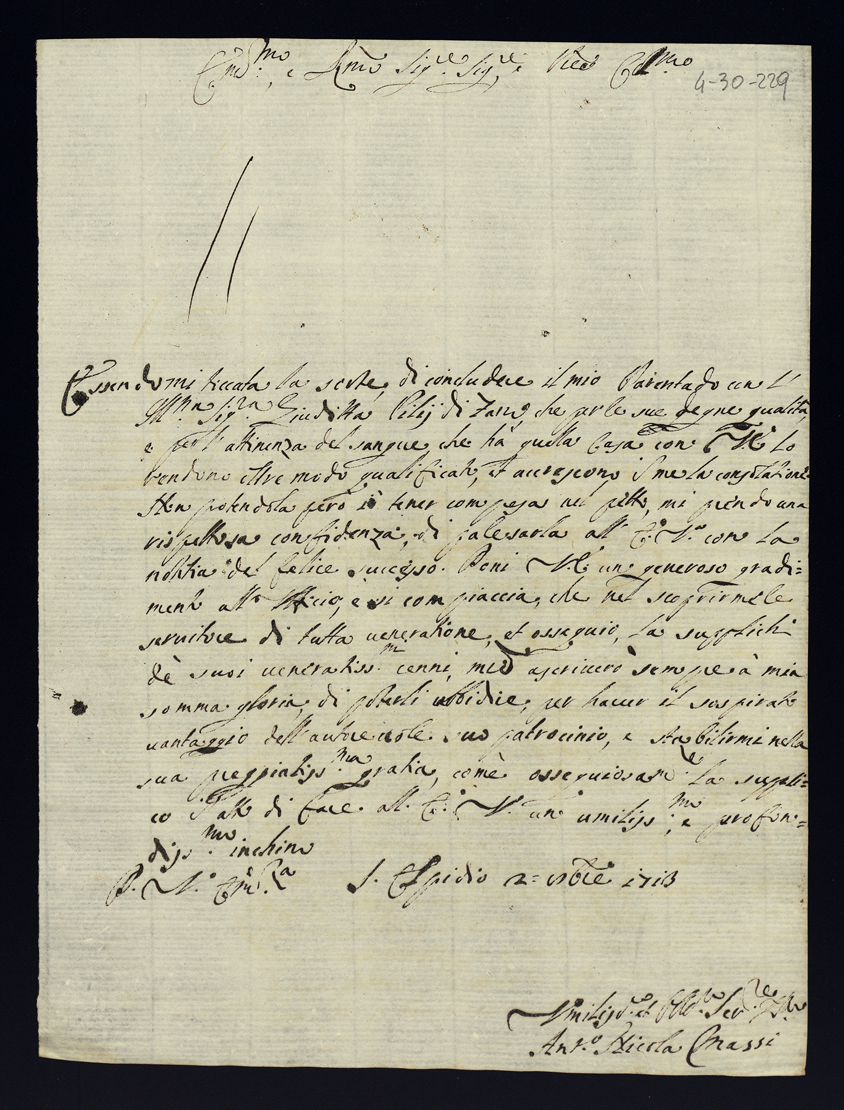 Em.mo, e Rmo Sig.re Sig.re e Pne Col.mo
4-30-229
Essendomi toccata la sorte, di concludere il mio Parentado con l'
Ill.ma Sig.ra Giuditta Pilij di Fano, che per le sue degne qualità,
e per l'attinenza del sangue, che hà quella Casa con V.E. lo
rendono oltre modo qualificato, et accrescono à me la consolatione.
Non potendola però io tener compresa nel petto, mi prendo una
rispettosa confidenza, di palesarla all' E. V.a con la
notitia del felice successo. Doni V.E. un generoso gradi=
mento all' Ufficio, e si compiaccia, che nel scoprirmele
servitore di tutta veneratione, et ossequio, la supplichi
de suoi veneratiss.mi cenni, mentre ascriverò sempre à mia
somma gloria, di poterli ubbidire, per haver il sospirato
vantaggio dell' autorevole suo patrocinio, e stabilirmi nella
sua pregiatiss.ma gratia, come ossequiosam.te la suppli=
co l'atto di fare all' E. V. un' umiliss.mo, e profon=
diss.mo inchino
D. V. Em.za S. Elpidio 2= 9bre 1713
Umiliss.o et Obb.mo Ser.re
Ant.o Nicola Massi